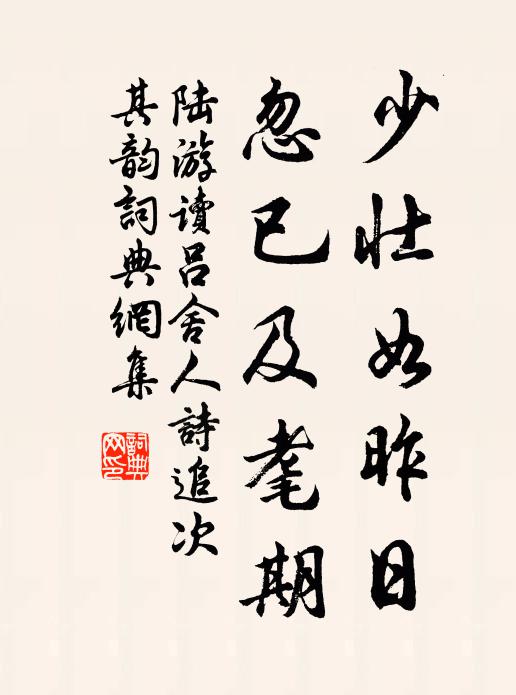 少壮如昨日
忽已及耄期
陆游读吕舍人詩追次
其韵詞典網集
詞典網印